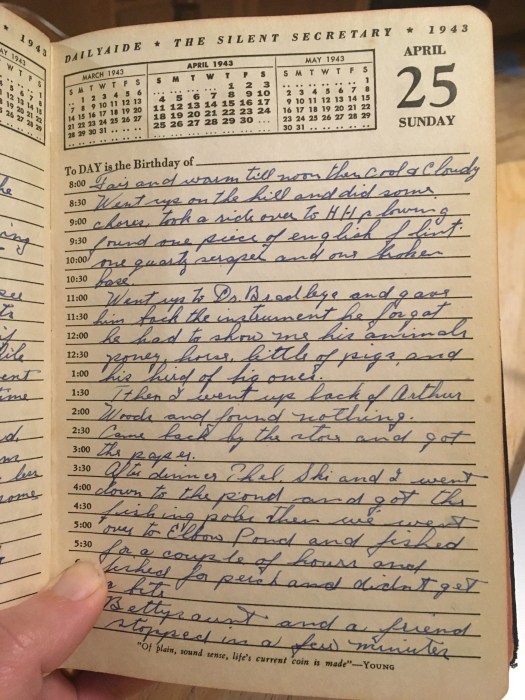 1943
DAILYAIDE ★ THE SILENT SECRETARY ★ 1943
MARCH 1943
S M T W T F S
. 1 2 3 4 5 6
7 8 9 10 11 12 13
14 15 16 17 18 19 20
21 22 23 24 25 26 27
28 29 30 31 . . .
APRIL 1943
S M T W T F S
. . . . 1 2 3
4 5 6 7 8 9 10
11 12 13 14 15 16 17
18 19 20 21 22 23 24
25 26 27 28 29 30 .
MAY 1943
S M T W T F S
. . . . . . 1
2 3 4 5 6 7 8
9 10 11 12 13 14 15
16 17 18 19 20 21 22
23 24 25 26 27 28 29
30 31 . . . . .
APRIL
25
SUNDAY
To DAY is the Birthday of
8:00 Fair and warm till noon then cool & Cloudy
8:30 Went up on the hill and did some
9:00 chores, took a ride over to HH plowing
9:30 found one piece of english flint.
10:00 one quartz scraper and one broken
10:30 base.
11:00 Went up to Dr. Bradleys and gave
11:30 him back the instrument he forgot
12:00 he had to show me his animals
12:30 poney, horse, little pigs, and
1:00 his herd of big ones.
1:30 Then I went up back of Arthur
2:00 Woods and found nothing.
2:30 Came back by the store and got
3:00 the paper.
3:30 After dinner Ski and I went
4:00 down to the pond and got the
4:30 fishing poles then we went
5:00 over to Elbow Pond and fished
5:30 for a couple of hours and
fished for perch and didn't get
a bite
Bettys aunt and a friend
stopped in a few minutes
"Of plain, sound sense, life's current coin is made"—YOUNG